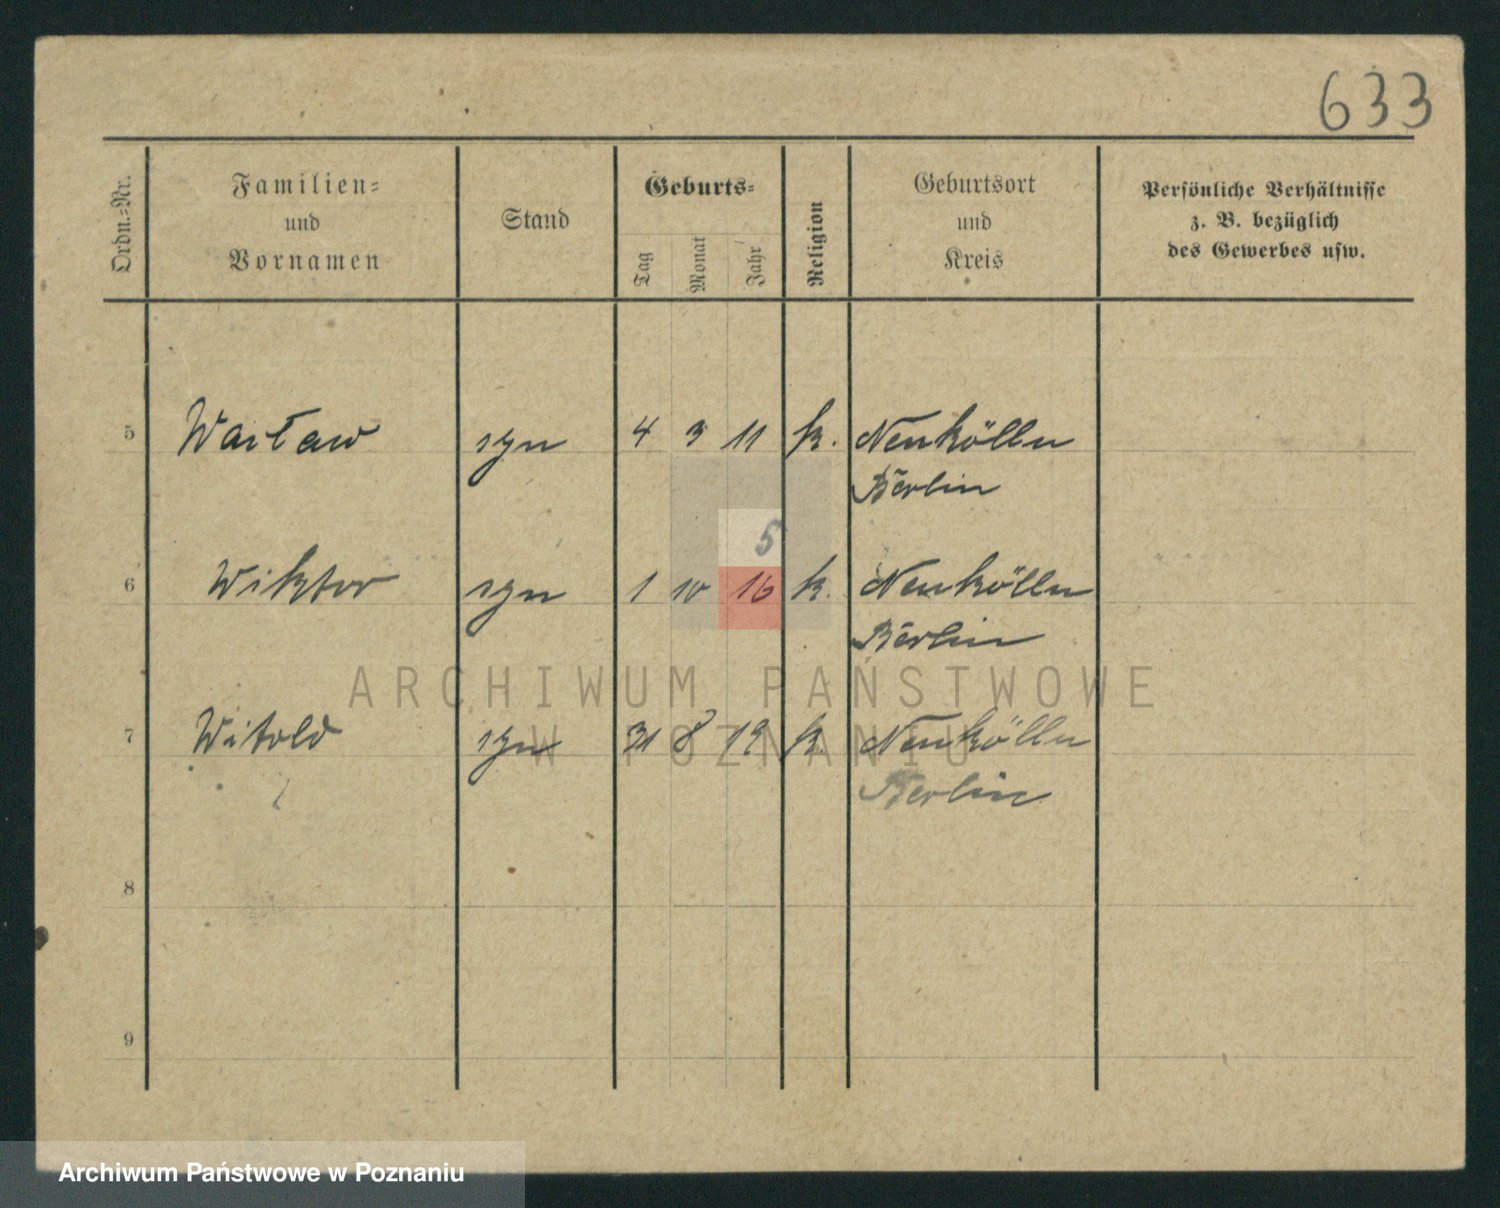 633
Ordn.-Nr.
Familien-
und
Vornamen
Stand
Geburts-
Tag
Monat
Jahr
Religion
Geburtsort
und
Kreis
Persönliche Verhältnisse
z. B. bezüglich
des Gewerbes usw.
5 Wacław syn 4 3 11 k. Neukölln
Berlin
5
6 Wiktor syn 1 10 16 k. Neukölln
Berlin
ARCHIWUM PAŃSTWOWE
7 Witold syn 31 8 19 k. Neukölln
W POZNANIU
Berlin
8
9
Archiwum Państwowe w Poznaniu